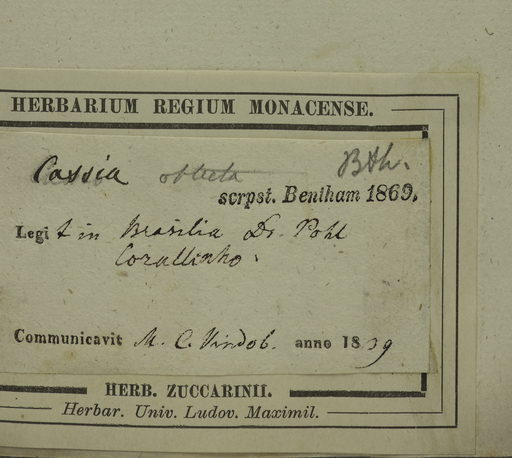 HERBARIUM REGIUM MONACENSE.
Cassia obtecta Bth.
scrpst. Bentham 1869.
Legit in Brasilia Dr. Pohl
Corallinho.
Communicavit M. C. Vindob. anno 1839
HERB. ZUCCARINII.
Herbar. Univ. Ludov. Maximil.